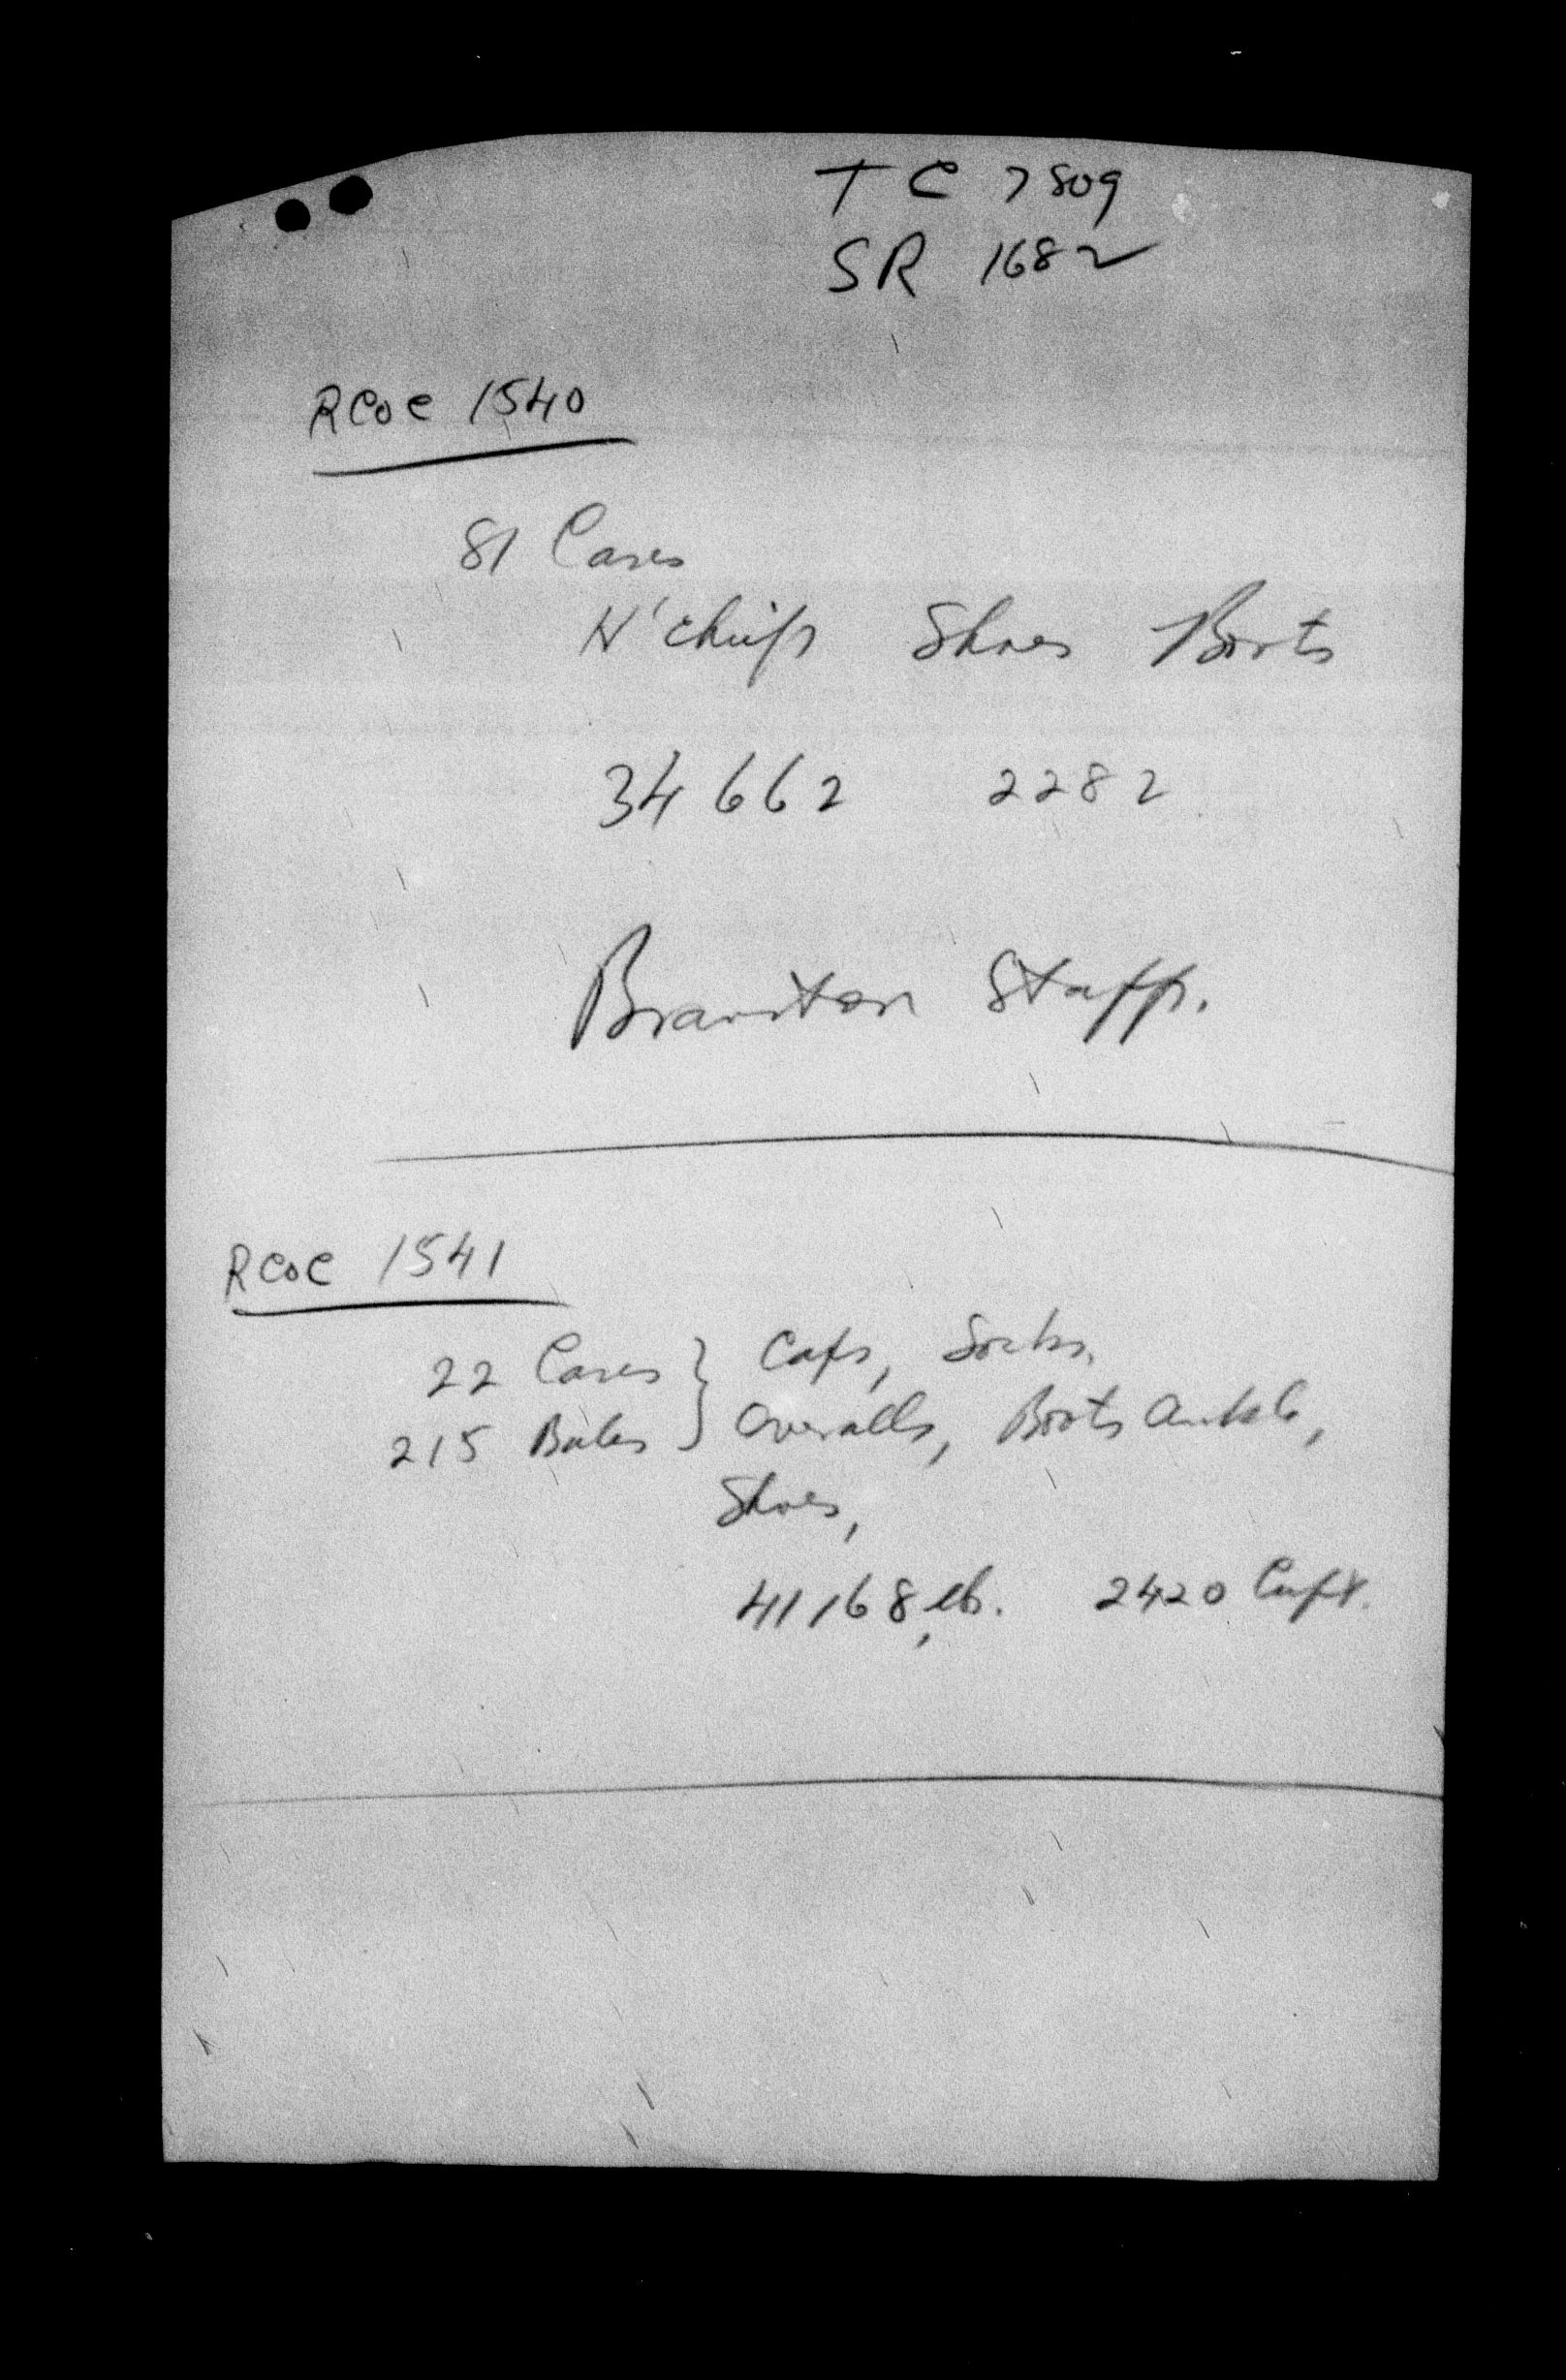 TC 7809
SR 1682
RCOC 1540
81 Cases
H'chiefs Shoes Boots
34662 2282
Branston Staffs.
RCOC 1541
22 Cases } Caps, Socks,
215 Bales } Overalls, Boots Ankle,
Shoes,
41168 lbs. 2420 Cuft.